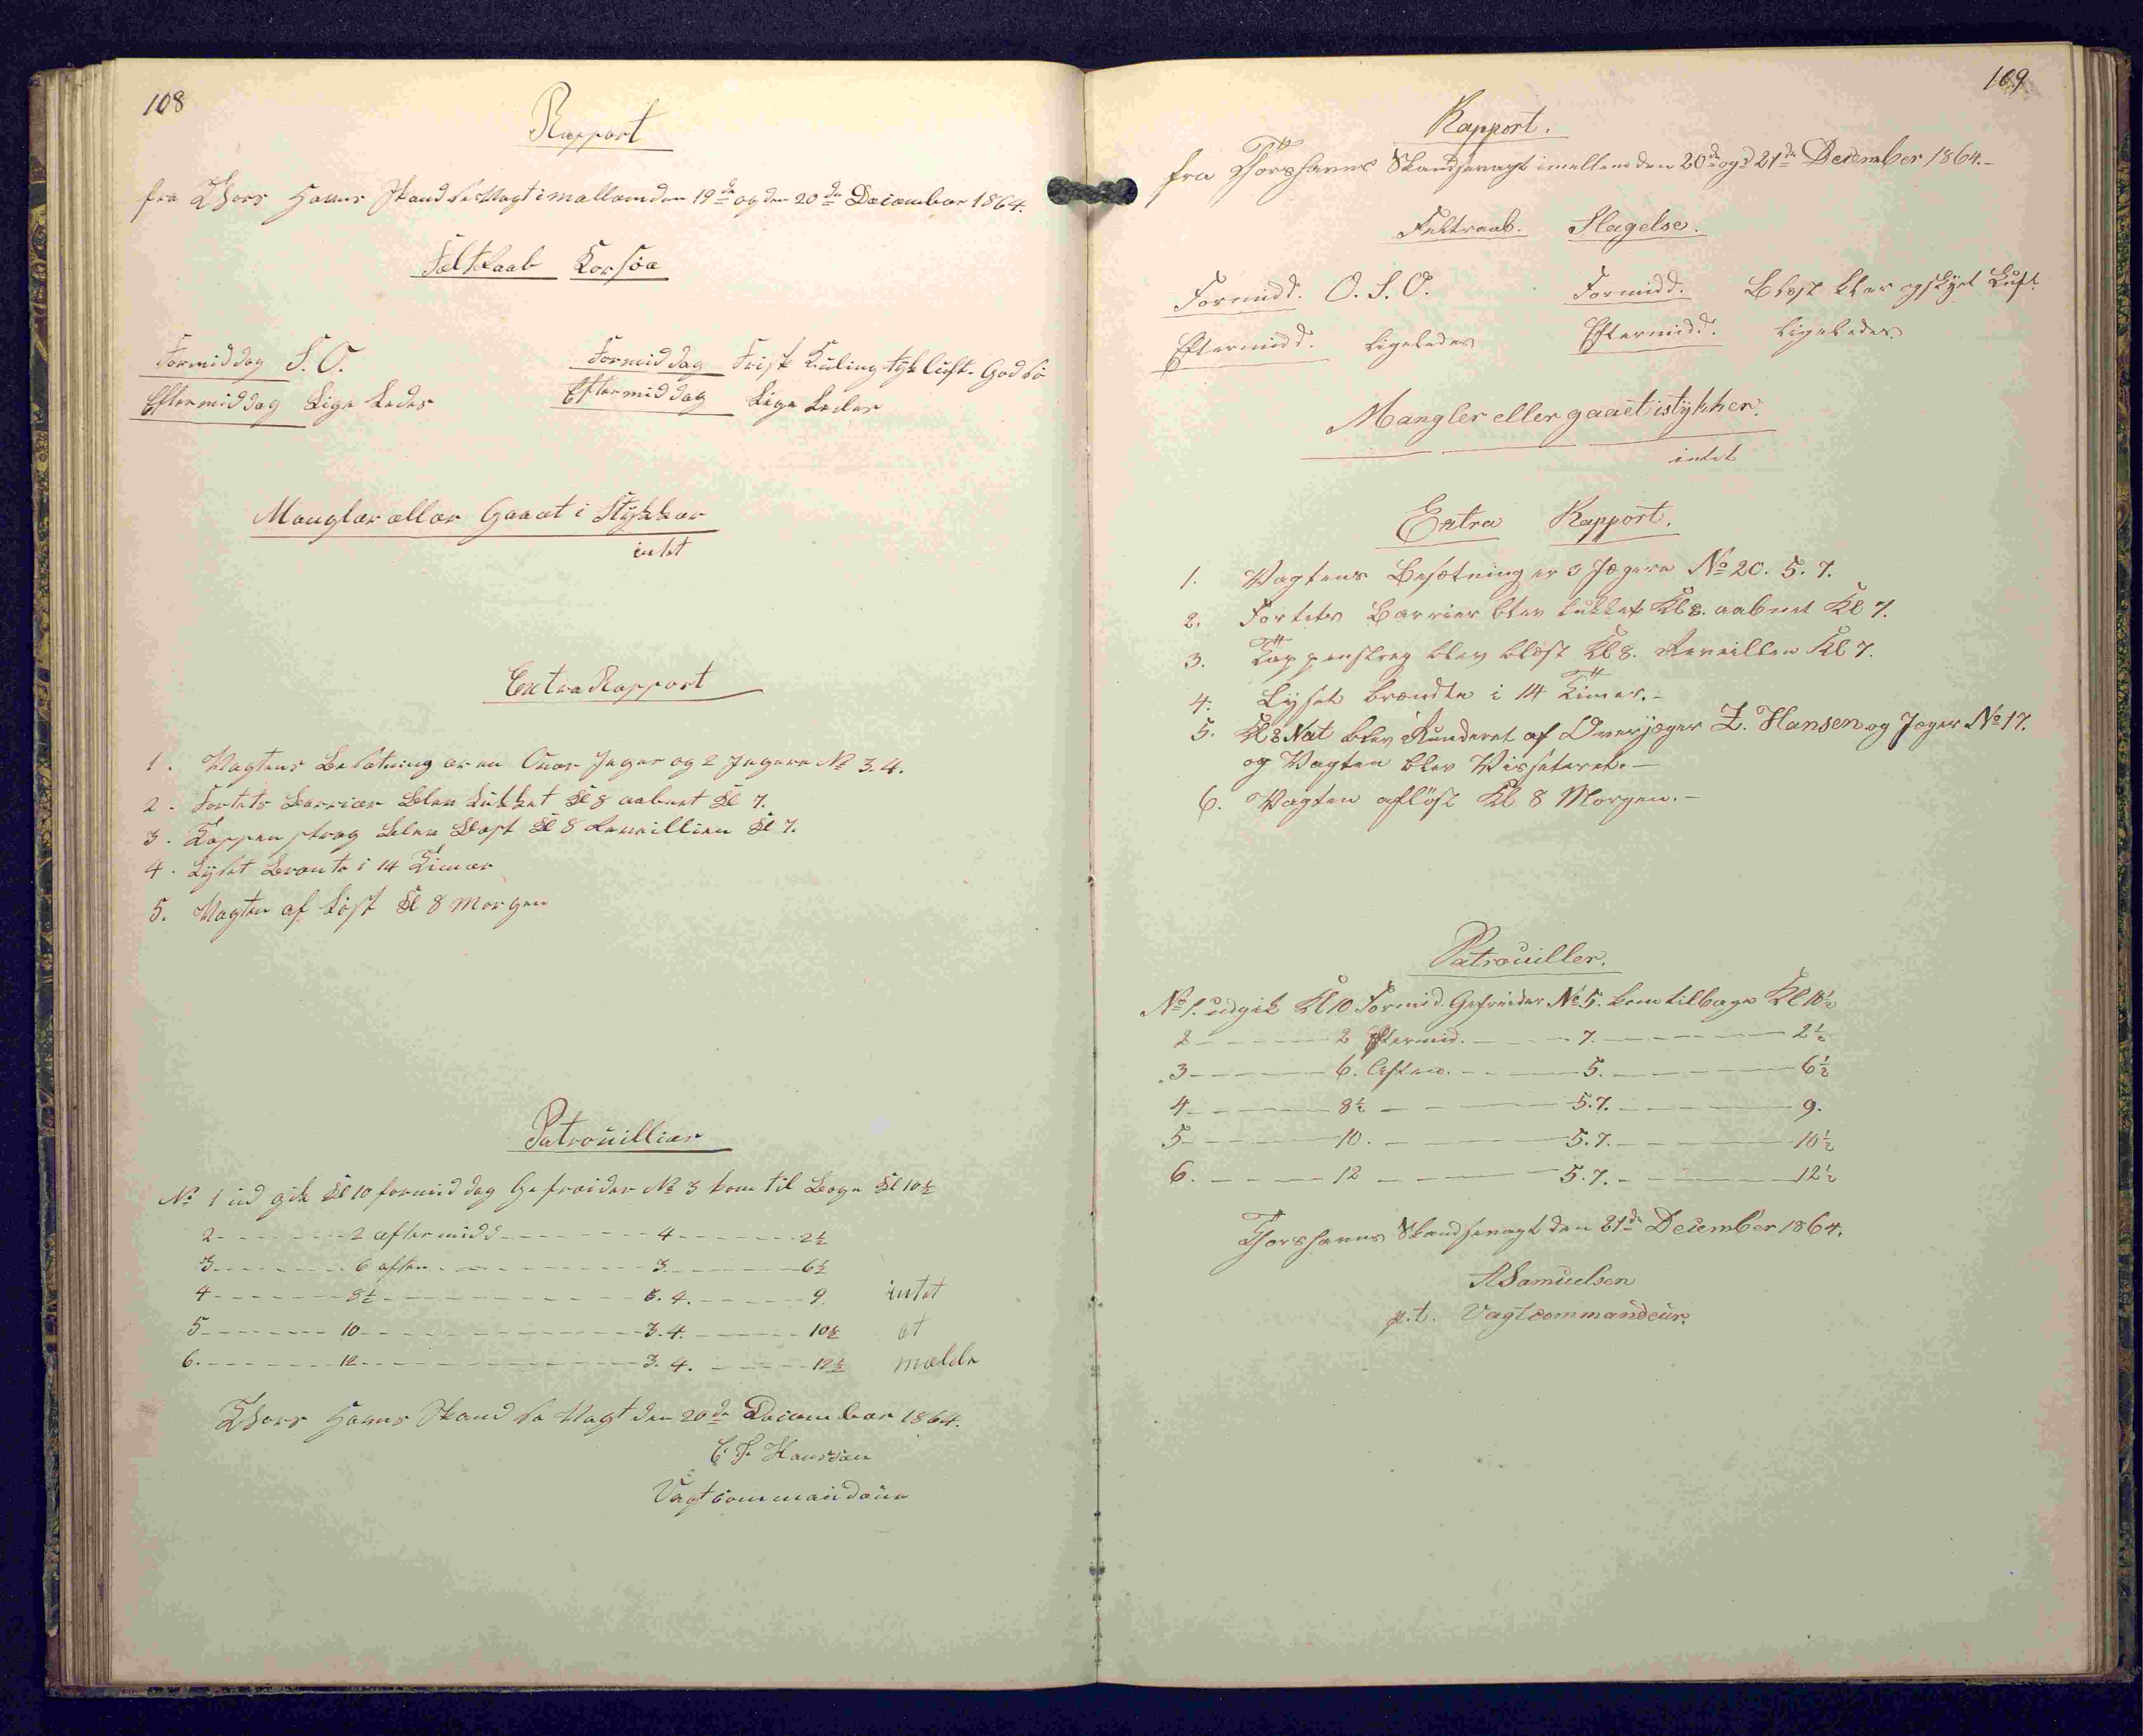 108
Rapport
fra Thors Havns Skandse Vagt imellem den 19de og den 20de December 1864.
Feltraab Korsöe
Formiddag S. O. Formiddag Frisk Kuling tyk luft. God Sö
Eftermiddag Lige Ledes Eftermiddag Lige Ledes
Mangler eller Gaaet i Stykker
intet
Extra Rapport
1. Vagtens Besetning er en Over Jeger og 2 Jegere No 3. 4.
2. Fortets Barrier blev Lukket Kl 8 aabnet Kl 7.
3. Tappenstreg blev blæst Kl 8 Reveillien Kl 7.
4. Lyset Brænte i 14 Timer
5. Vagten af Löst Kl 8 Morgen
Patrouillier
No 1 ud gik Kl 10 formiddag Gefreider No 3 kom til bage Kl 10½
2 - - - 2 eftermidd - - - 4 - - - 2½
3 - - - 6 aften - - - 3 - - - 6½
4 - - - 8½ - - - 3. 4. - - - 9. intet
5 - - - 10 - - - 3. 4. - - - 10½ at
6. - - - 12 - - - 3. 4. - - - 12½ melde
Thors Havns Skandse Vagt den 20de December 1864.
Hanssen
Vagtcommandeur
109
Rapport.
fra Thorshavns Skandsevagt imellem den 20de og 21de December 1864.-
Feltraab. Slagelse.
Formidd. O. S. O. Formidd. Blæst klar og skyet Luft.
Eftermidd. ligeledes Eftermidd. ligeledes.
Mangler eller gaaet istykker.
intet
Extra Rapport.
1. Vagtens Besætning er 3 Jægere No 20. 5. 7.
2. Fortets Barrier blev lukket Kl 8. aabnet Kl 7.
3. Tappenstreg blev blæst Kl 8. Reveillen Kl 7.
4. Lyset brændte i 14 Timer.-
5. Kl 8 Nat blev Runderet af Overjæger Z. Hansen og Jæger No 17.
og Vagten blev Vissiteret.-
6. Vagten aflöst Kl 8 Morgen.-
Patrouiller.
No 1. udgik Kl 10 Formid. Gefreider No 5. kom tilbage Kl 10½
2 - - - 2 Eftermid. - - - 7. - - - 2½
3 - - - 6. Aften. - - - 5. - - - 6½
4 - - - 8½ - - - 5. 7. - - - 9.
5 - - - 10. - - - 5. 7. - - - 10½
6. - - - 12 - - - 5. 7. - - - 12½
Thorshavns Skandsevagt den 21de December 1864.
Samuelsen
p.t. Vagtcommandeur.